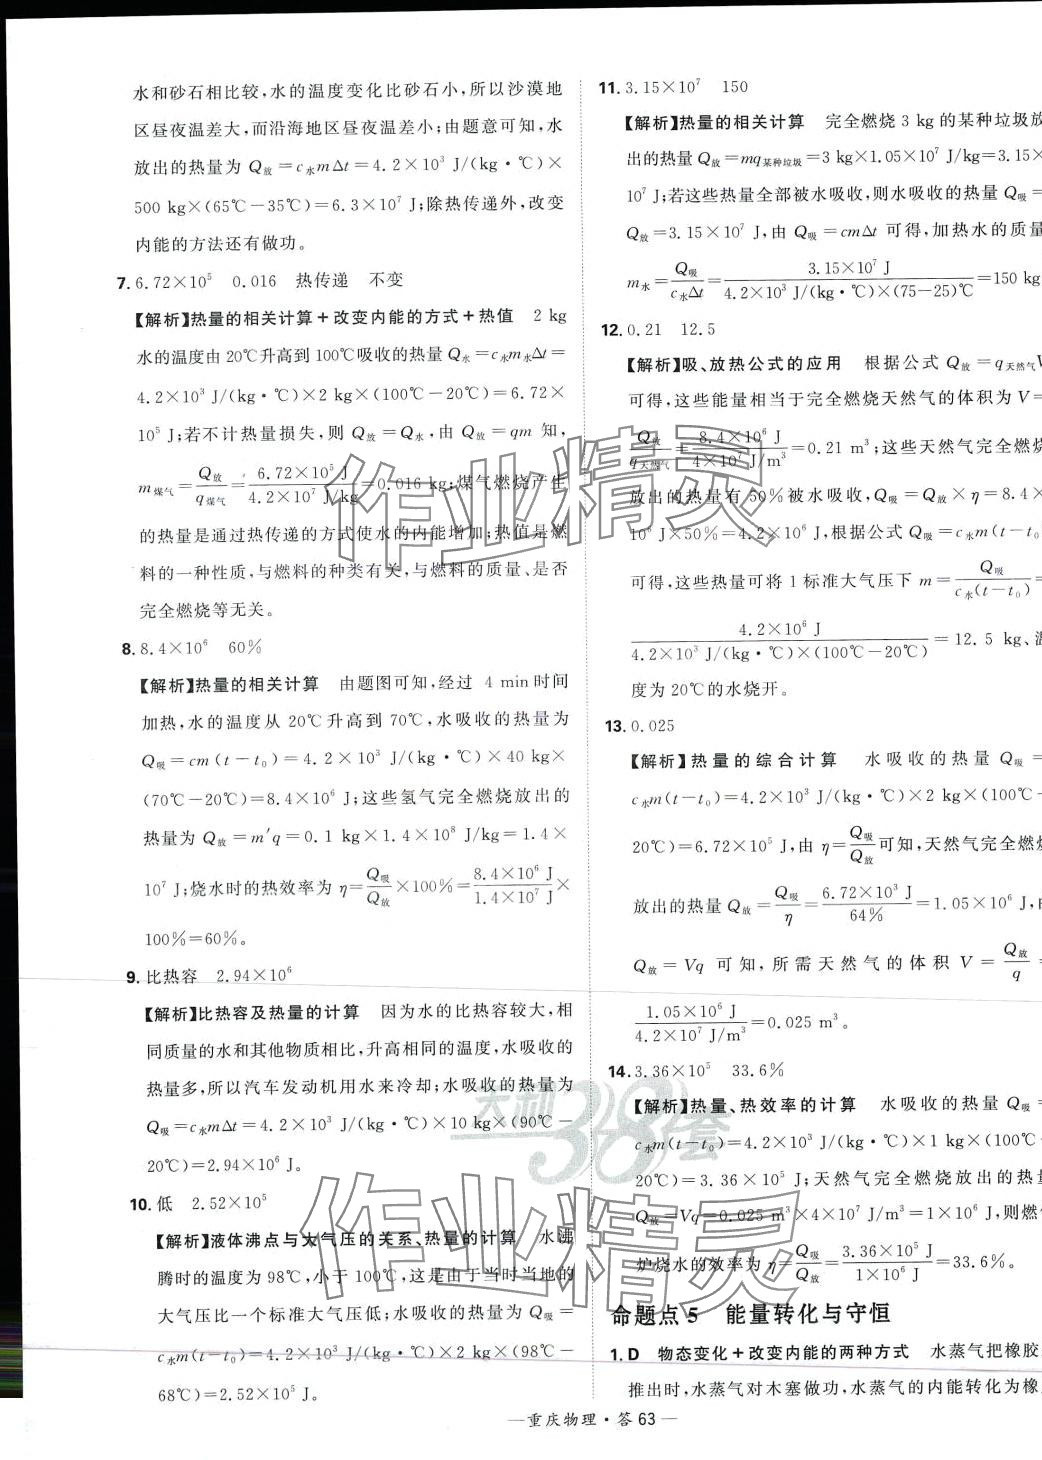 水和砂石相比较,水的温度变化比砂石小,所以沙漠地
区昼夜温差大,而沿海地区昼夜温差小;由题意可知,水
放出的热量为 Q放=c水mΔt=4.2×10³ J/(kg·℃)×
500 kg×(65℃-35℃)=6.3×10⁷ J;除热传递外,改变
内能的方法还有做功。
7. 6.72×10⁵ 0.016 热传递 不变
【解析】热量的相关计算+改变内能的方式+热值 2 kg
水的温度由20℃升高到100℃吸收的热量 Q水=c水m水Δt=
4.2×10³ J/(kg·℃)×2 kg×(100℃-20℃)=6.72×
10⁵ J;若不计热量损失,则 Q放=Q水,由 Q放=qm 知,
m煤气=Q放/q煤气=6.72×10⁵ J/4.2×10⁷ J/kg=0.016 kg;煤气燃烧产生
的热量是通过热传递的方式使水的内能增加;热值是燃
料的一种性质,与燃料的种类有关,与燃料的质量、是否
完全燃烧等无关。
8. 8.4×10⁶ 60%
【解析】热量的相关计算 由题图可知,经过 4 min时间
加热,水的温度从 20℃升高到 70℃,水吸收的热量为
Q吸=cm(t-t₀)=4.2×10³ J/(kg·℃)×40 kg×
(70℃-20℃)=8.4×10⁶ J;这些氢气完全燃烧放出的
热量为 Q放=m′q=0.1 kg×1.4×10⁸ J/kg=1.4×
10⁷ J;烧水时的热效率为 η=Q吸/Q放×100%=8.4×10⁶ J/1.4×10⁷ J×
100%=60%。
9. 比热容 2.94×10⁶
【解析】比热容及热量的计算 因为水的比热容较大,相
同质量的水和其他物质相比,升高相同的温度,水吸收的
热量多,所以汽车发动机用水来冷却;水吸收的热量为
Q吸=c水mΔt=4.2×10³ J/(kg·℃)×10 kg×(90℃-
20℃)=2.94×10⁶ J。
10. 低 2.52×10⁵
【解析】液体沸点与大气压的关系、热量的计算 水沸
腾时的温度为98℃,小于100℃,这是由于当时当地的
大气压比一个标准大气压低;水吸收的热量为 Q吸=
c水m(t-t₀)=4.2×10³ J/(kg·℃)×2 kg×(98℃-
68℃)=2.52×10⁵ J。
11. 3.15×10⁷ 150
【解析】热量的相关计算 完全燃烧 3 kg 的某种垃圾放
出的热量 Q放=mq某种垃圾=3 kg×1.05×10⁷ J/kg=3.15×
10⁷ J;若这些热量全部被水吸收,则水吸收的热量 Q吸=
Q放=3.15×10⁷ J,由 Q吸=cmΔt 可得,加热水的质量
m水=Q吸/c水Δt=3.15×10⁷ J/4.2×10³ J/(kg·℃)×(75-25)℃=150 kg
12. 0.21 12.5
【解析】吸、放热公式的应用 根据公式 Q放=q天然气V
可得,这些能量相当于完全燃烧天然气的体积为 V=
Q放/q天然气=8.4×10⁶ J/4×10⁷ J/m³=0.21 m³;这些天然气完全燃烧
放出的热量有50%被水吸收,Q吸=Q放×η=8.4×
10⁶ J×50%=4.2×10⁶ J,根据公式 Q吸=c水m(t-t₀)
可得,这些热量可将 1 标准大气压下 m=Q吸/c水(t-t₀)=
4.2×10⁶ J/4.2×10³ J/(kg·℃)×(100℃-20℃)=12.5 kg、温
度为20℃的水烧开。
13. 0.025
【解析】热量的综合计算 水吸收的热量 Q吸=
c水m(t-t₀)=4.2×10³ J/(kg·℃)×2 kg×(100℃-
20℃)=6.72×10⁵ J,由 η=Q吸/Q放可知,天然气完全燃烧
放出的热量 Q放=Q吸/η=6.72×10⁵ J/64%=1.05×10⁶ J,由
Q放=Vq 可知,所需天然气的体积 V=Q放/q=
1.05×10⁶ J/4.2×10⁷ J/m³=0.025 m³。
14. 3.36×10⁵ 33.6%
【解析】热量、热效率的计算 水吸收的热量 Q吸=
c水m(t-t₀)=4.2×10³ J/(kg·℃)×1 kg×(100℃-
20℃)=3.36×10⁵ J;天然气完全燃烧放出的热量
Q放=Vq=0.025 m³×4×10⁷ J/m³=1×10⁶ J,则燃气
炉烧水的效率为 η=Q吸/Q放=3.36×10⁵ J/1×10⁶ J=33.6%。
命题点5 能量转化与守恒
1. D 物态变化+改变内能的两种方式 水蒸气把橡胶
推出时,水蒸气对木塞做功,水蒸气的内能转化为橡
—重庆物理·答 63—
作业精灵
天利38套
作业精灵